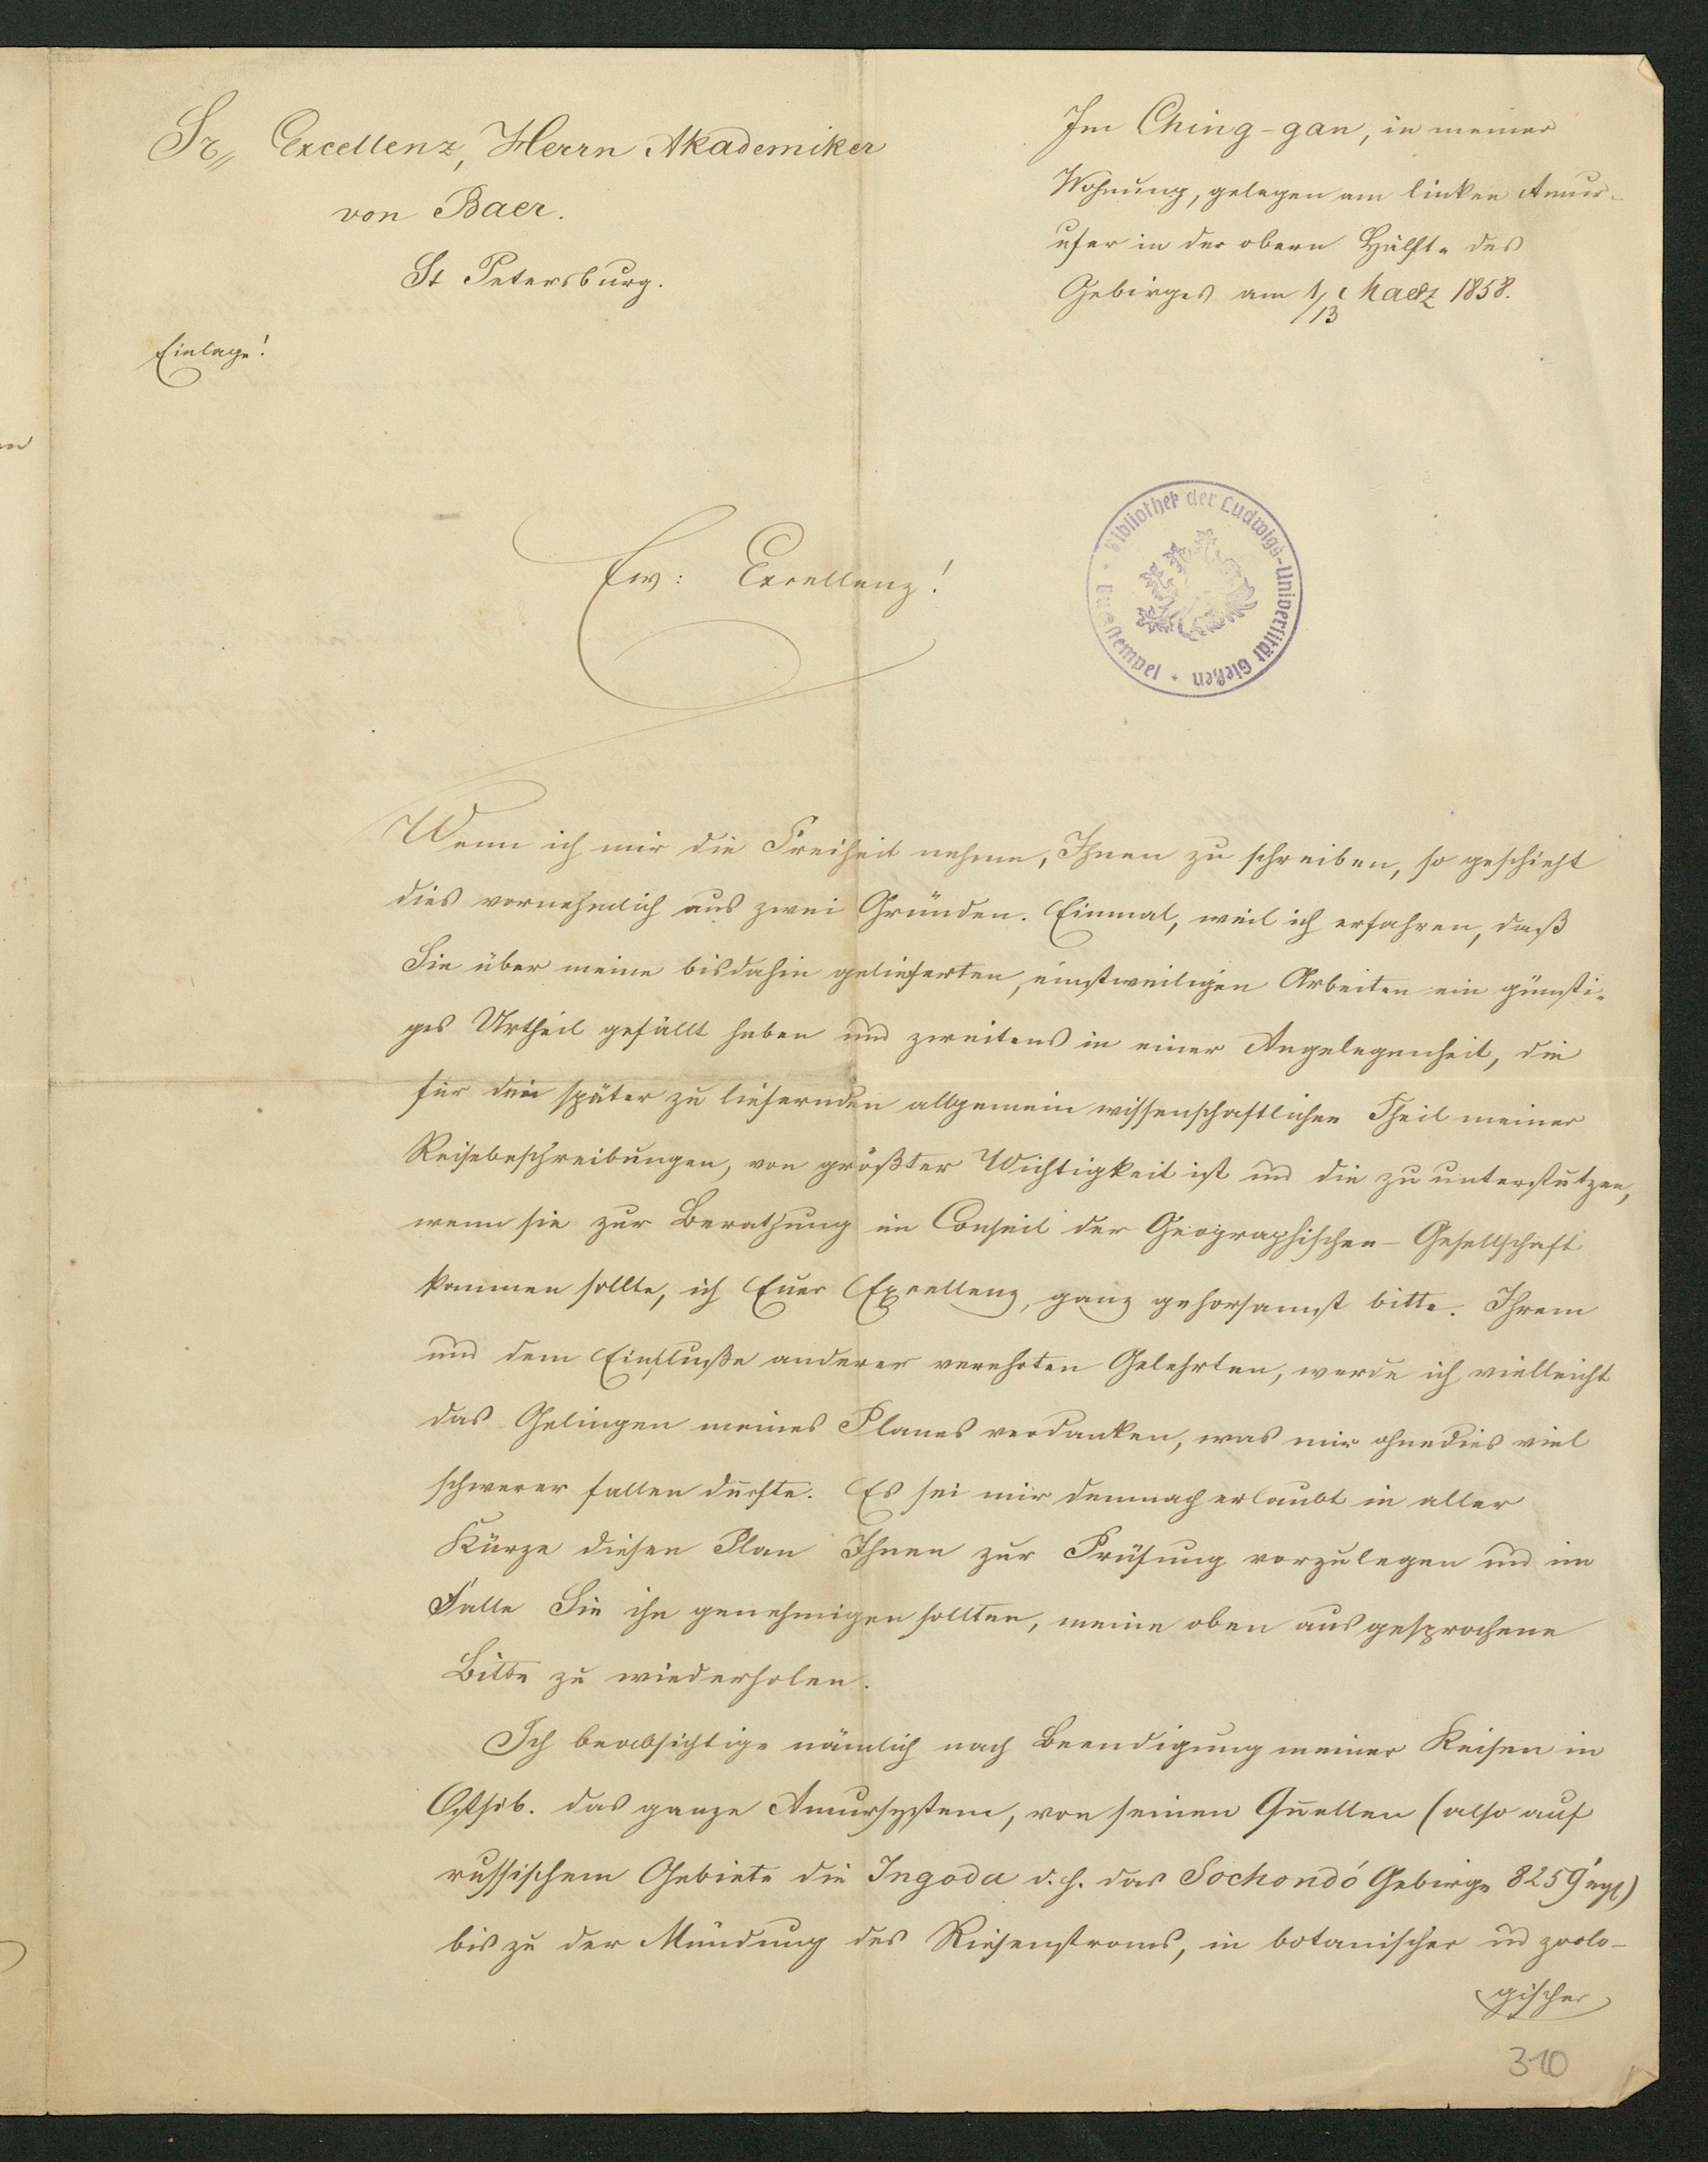 Sr Excellenz, Herrn Akademiker
von Baer.
St Petersburg.
Einlage!
Im Ching-gan, in meiner
Wohnung, gelegen am linken Amur-
ufer in der obern Hälfte des
Gebirges am 1/13 Maerz 1858.
Bibliothek der Ludwigs-Universität Gießen
Ew: Excellenz!
Wenn ich mir die Freiheit nehme, Ihnen zu schreiben, so geschieht
dies vornehmlich aus zwei Gründen. Einmal, weil ich erfahren, daß
Sie über meine bisdahin gelieferten, einstweiligen Arbeiten ein günsti-
ges Urtheil gefällt haben und zweitens in einer Angelegenheit, die
für den später zu liefernden allgemein wissenschaftlichen Theil meiner
Reisebeschreibungen, von größter Wichtigkeit ist und die zu unterstutzen,
wenn sie zur Berathung im Conseil der Geographischen-Gesellschaft
kommen sollte, ich Euer Excellenz, ganz gehorsamst bitte. Ihrem
und dem Einfluße anderer verehrten Gelehrten, werde ich vielleicht
das Gelingen meines Planes verdanken, was mir ohnedies viel
schwerer fallen dürfte. Es sei mir demnach erlaubt in aller
Kürze diesen Plan Ihnen zur Prüfung vorzulegen und im
Falle Sie ihn genehmigen sollten, meine oben ausgesprochene
Bitte zu wiederholen.
Ich beabsichtige nämlich nach Beendigung meiner Reisen in
Ostsib. das ganze Amursystem, von seinen Quellen (also auf
russischem Gebiete die Ingoda d. h. das Sochondó Gebirge 8259' engl)
bis zu der Mündung des Riesenstroms, in botanischer und zoolo-
gischer
310